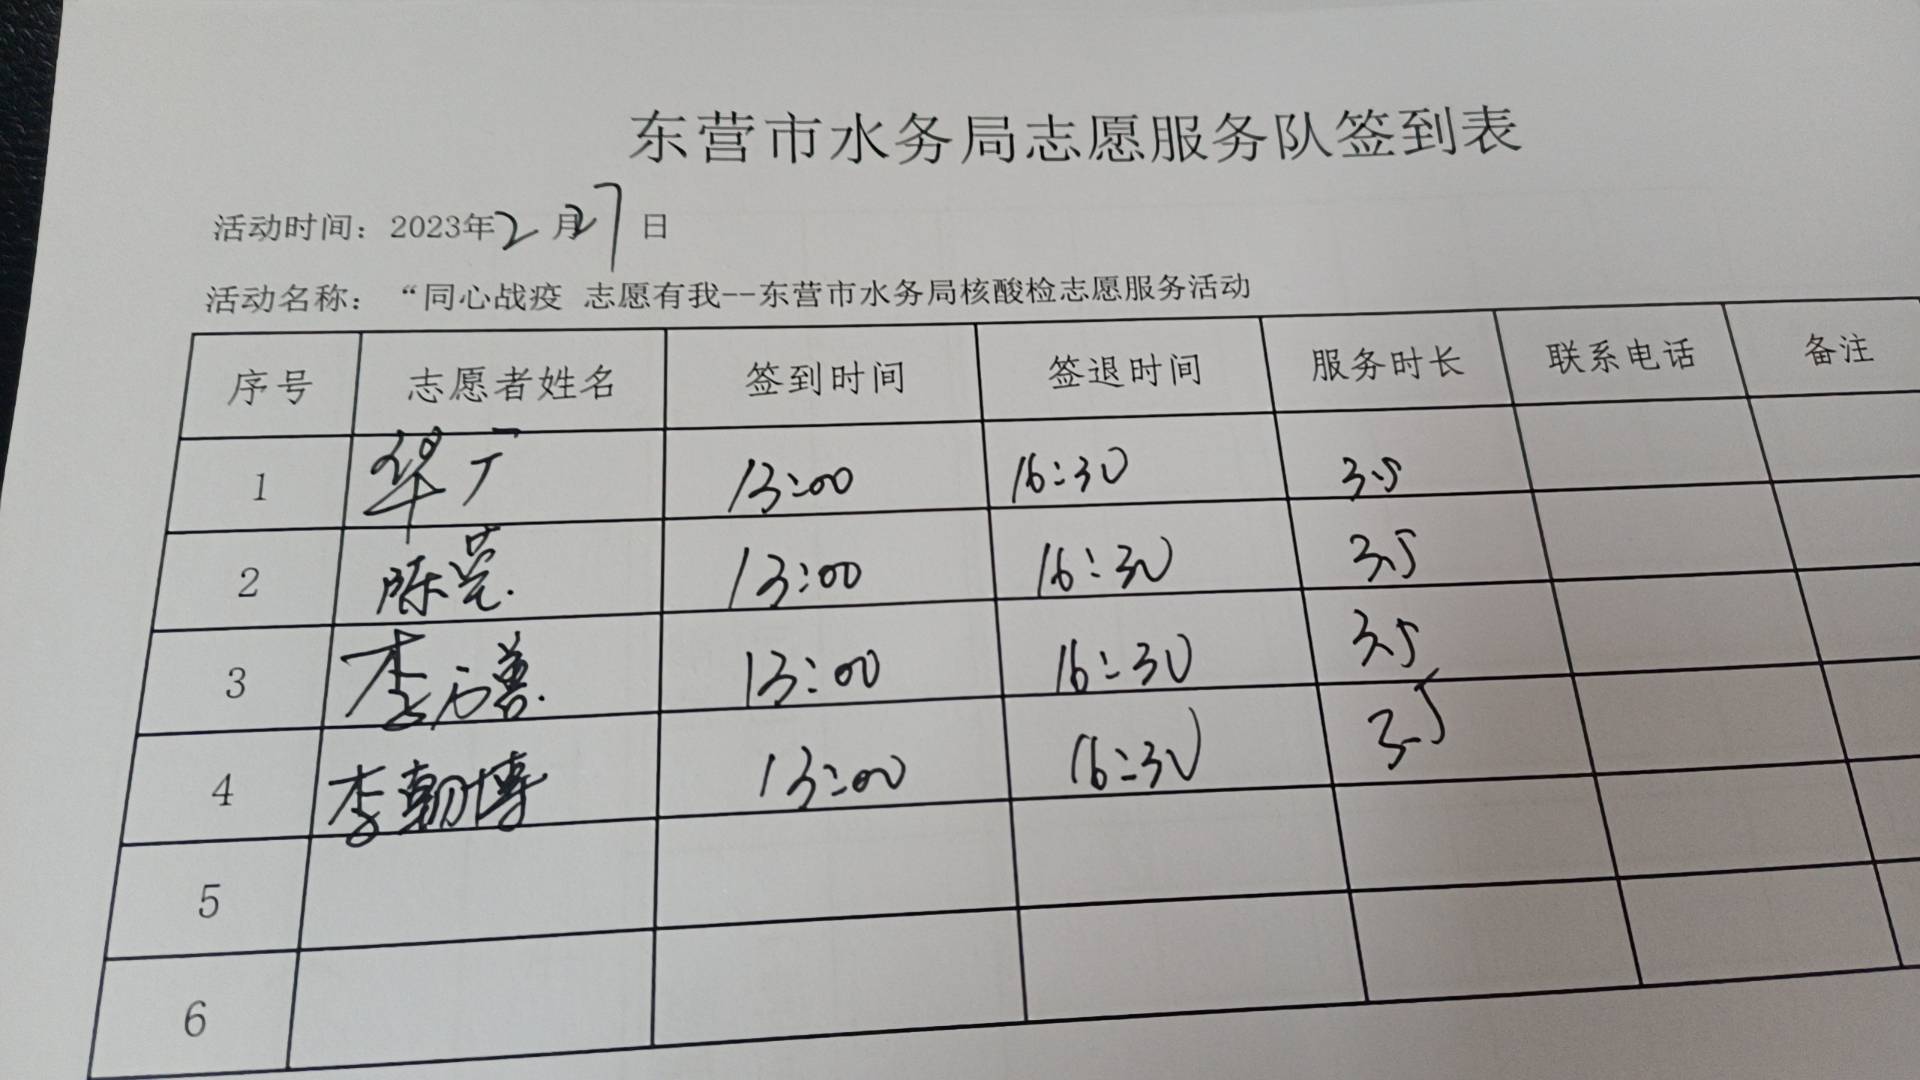 东营市水务局志愿服务队签到表
活动时间：2023年2月27日
活动名称：“同心战疫 志愿有我--东营市水务局核酸检志愿服务活动
序号 志愿者姓名 签到时间 签退时间 服务时长 联系电话 备注
1 华 13:00 16:30 3.5
2 陈 13:00 16:30 3.5
3 李 13:00 16:30 3.5
4 李朝博 13:00 16:30 3.5
5
6